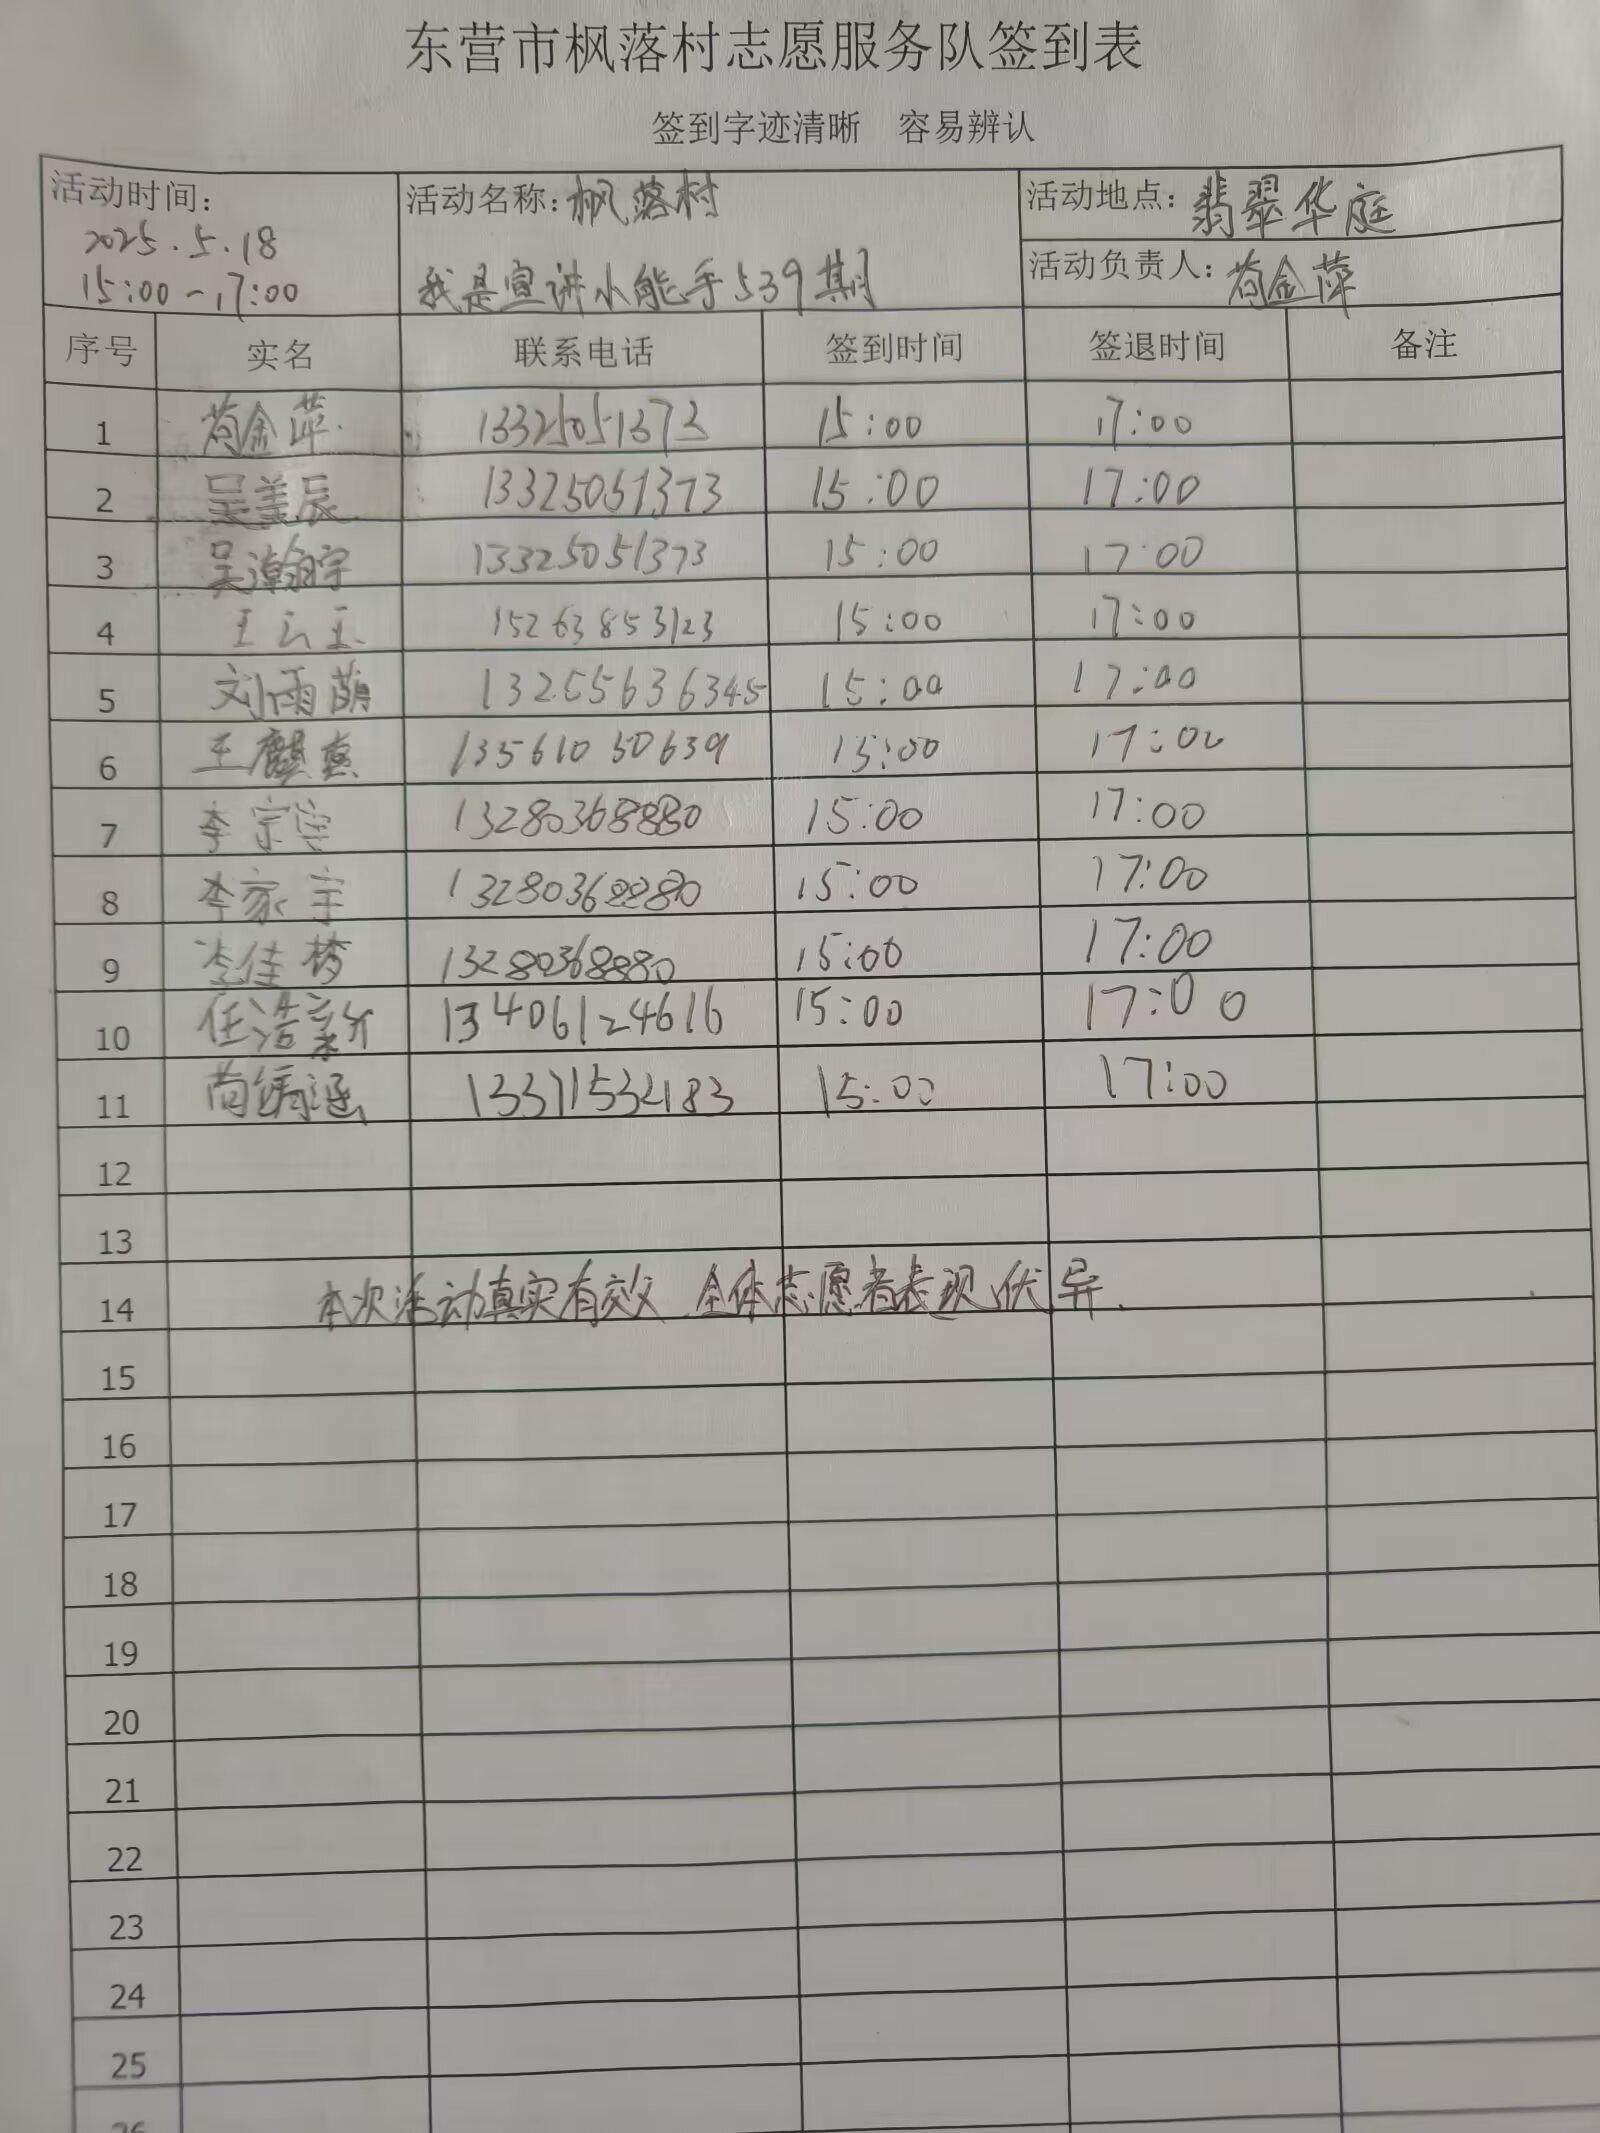 东营市枫落村志愿服务队签到表
签到字迹清晰 容易辨认
活动时间: 2025.5.18 15:00-17:00
活动名称: 枫落村 我是宣讲小能手539期
活动地点: 翡翠华庭
活动负责人: 苟金萍
序号 实名 联系电话 签到时间 签退时间 备注
1 苟金萍 13325051373 15:00 17:00
2 吴美辰 13325051373 15:00 17:00
3 吴瀚宇 13325051373 15:00 17:00
4 王云玉 15263853123 15:00 17:00
5 刘雨萌 13255636345 15:00 17:00
6 王麒惠 13561050639 15:00 17:00
7 李宗 13280368880 15:00 17:00
8 李家宇 13280368880 15:00 17:00
9 李佳梦 13280368880 15:00 17:00
10 任浩 13406124616 15:00 17:00
11 涵 13371532183 15:00 17:00
12
13
14 本次活动真实有效 全体志愿者表现优异.
15
16
17
18
19
20
21
22
23
24
25
26